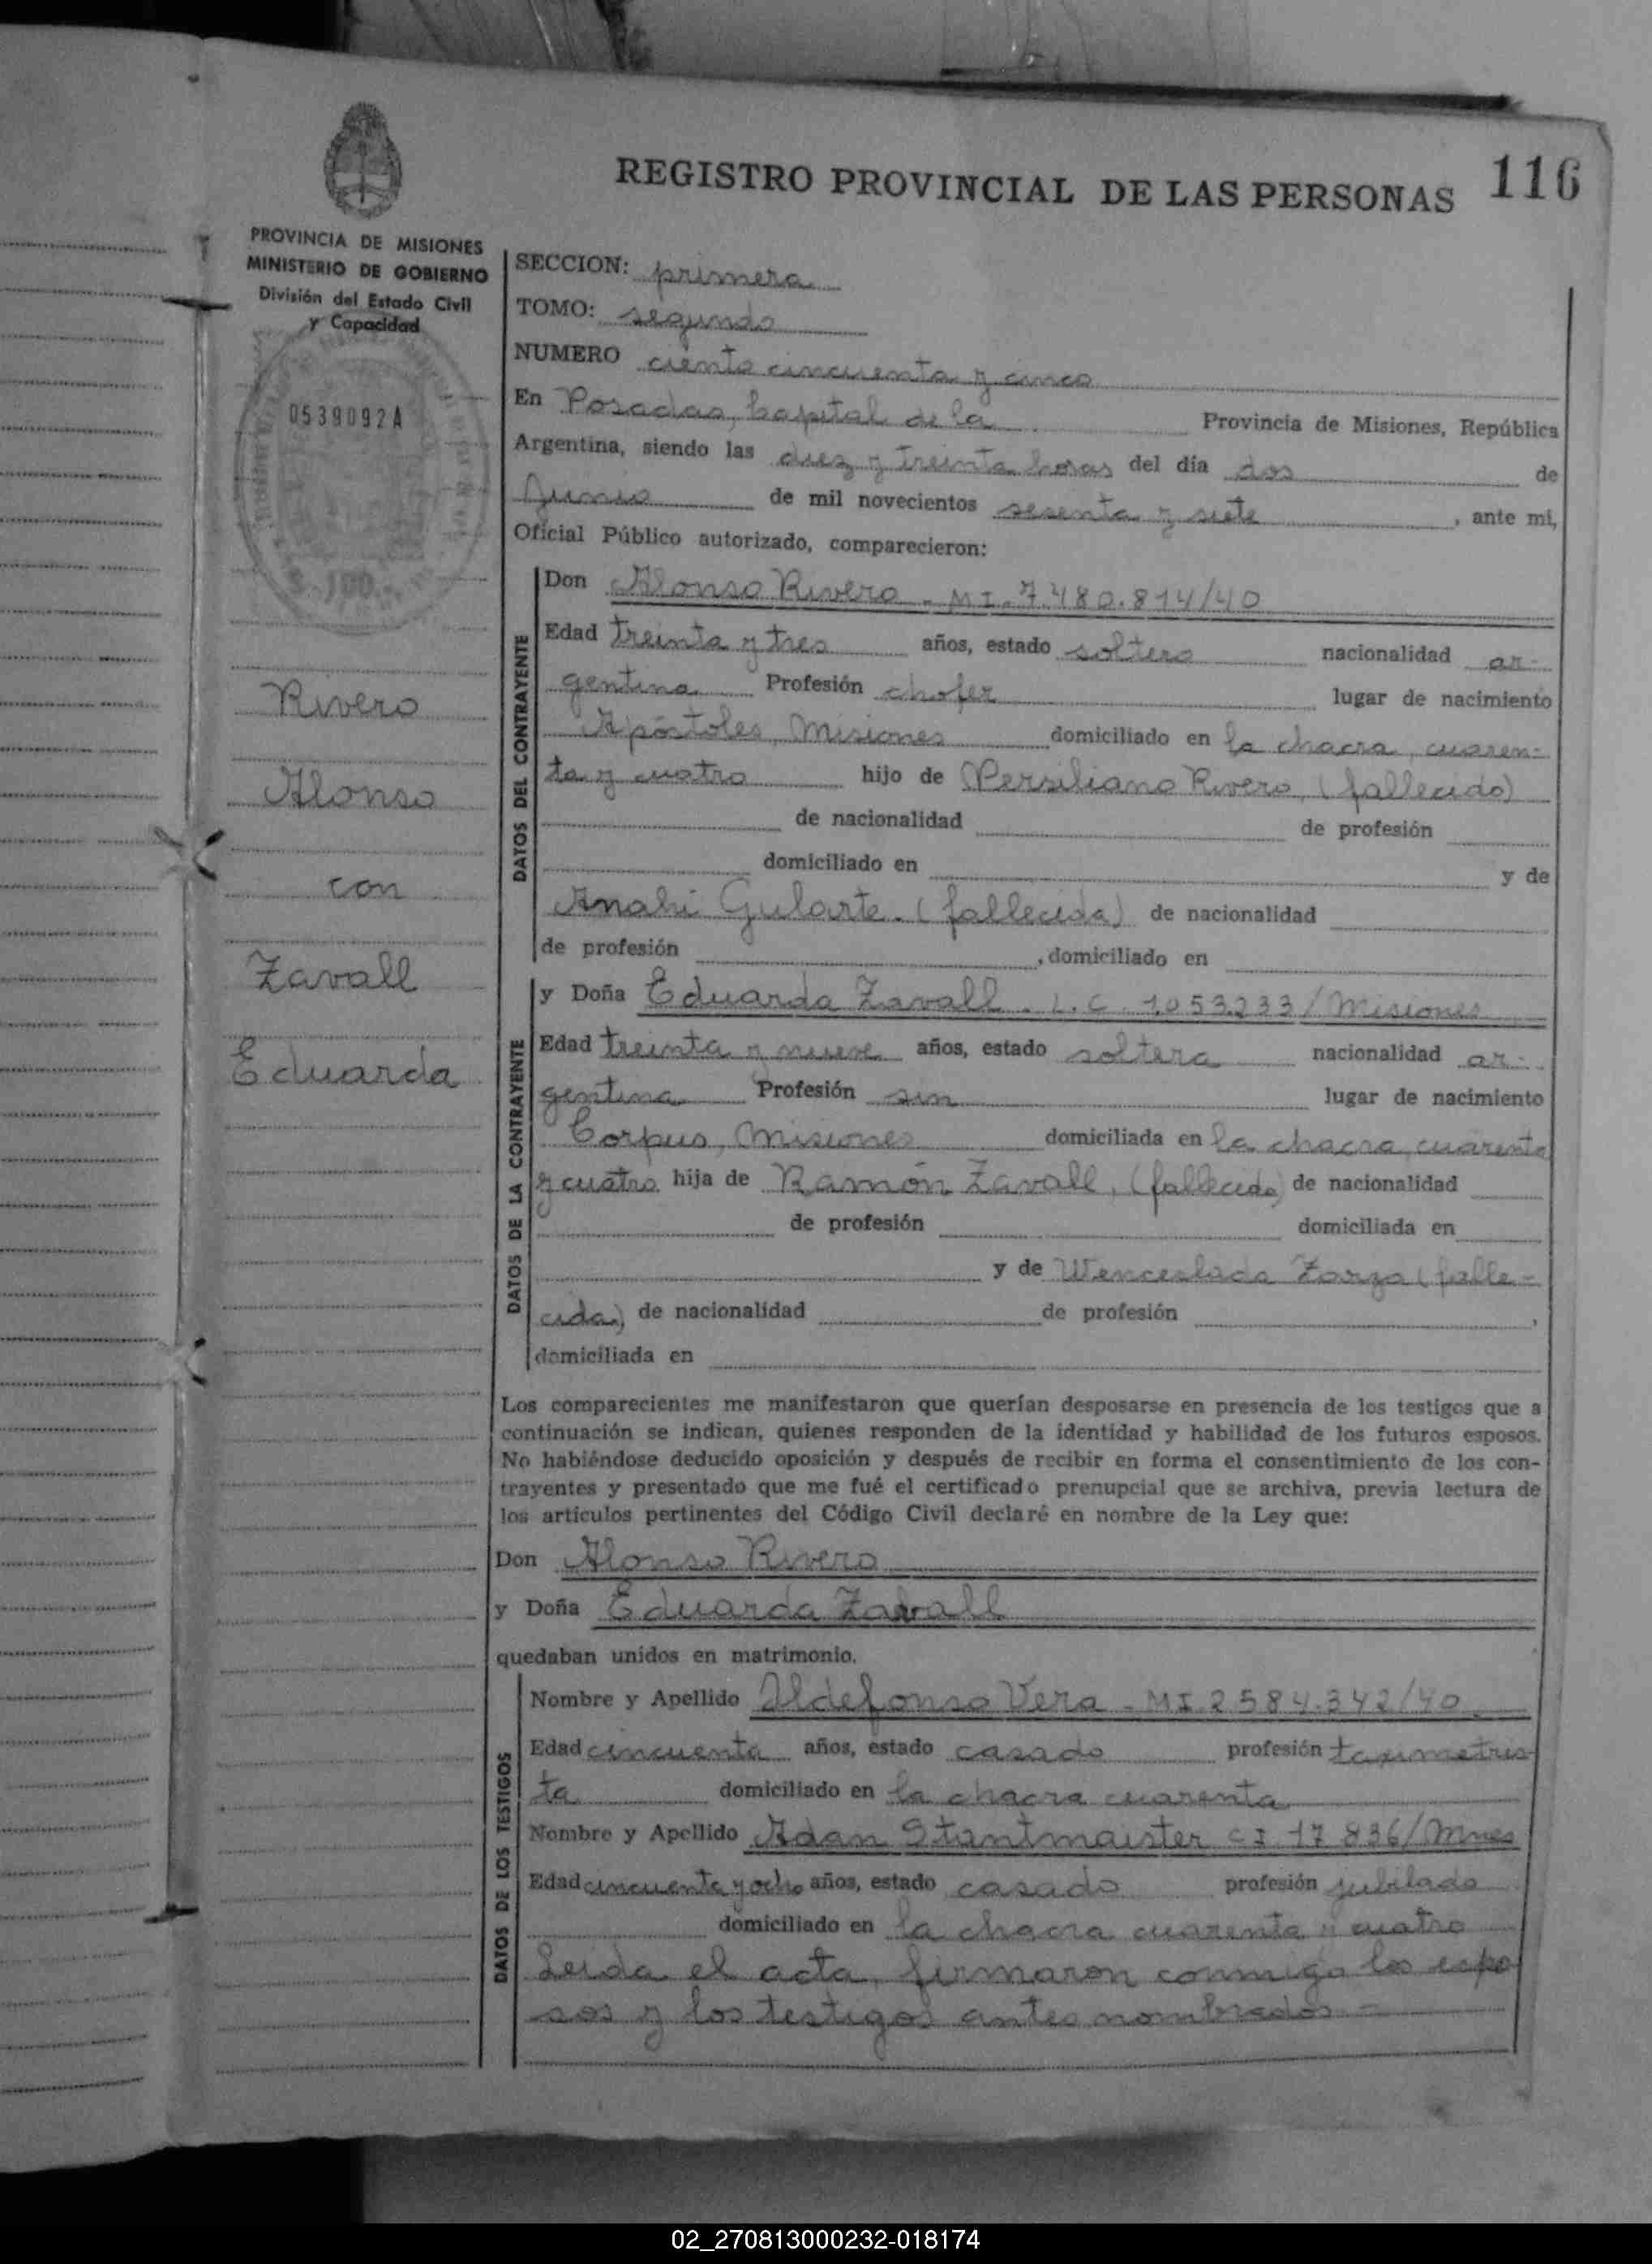 REGISTRO PROVINCIAL DE LAS PERSONAS 116
PROVINCIA DE MISIONES
MINISTERIO DE GOBIERNO
División del Estado Civil
y Capacidad
0539092A
Rivero
Alonso
con
Zavall
Eduarda
SECCION: primera
TOMO: segundo
NUMERO ciento cincuenta y cinco
En Posadas, Capital de la Provincia de Misiones, República
Argentina, siendo las diez y treinta horas del día dos de
Junio de mil novecientos sesenta y siete, ante mi,
Oficial Público autorizado, comparecieron:
DATOS DEL CONTRAYENTE
Don Alonso Rivero - MI. 7.480.814/40
Edad treinta y tres años, estado soltero nacionalidad ar-
gentina Profesión chofer lugar de nacimiento
Apóstoles, Misiones domiciliado en la chacra cuaren-
ta y cuatro hijo de Persiliano Rivero, (fallecido)
de nacionalidad de profesión
domiciliado en y de
Anahi Gularte. (fallecida) de nacionalidad
de profesión , domiciliado en
DATOS DE LA CONTRAYENTE
y Doña Eduarda Zavall - L.C. 1.053.233/Misiones
Edad treinta y nueve años, estado soltera nacionalidad ar-
gentina Profesión sin lugar de nacimiento
Corpus, Misiones domiciliada en la chacra cuarenta
y cuatro hija de Ramón Zavall, (fallecido) de nacionalidad
de profesión domiciliada en
y de Wenceslada Zorza (falle-
cida) de nacionalidad de profesión ,
domiciliada en
Los comparecientes me manifestaron que querían desposarse en presencia de los testigos que a
continuación se indican, quienes responden de la identidad y habilidad de los futuros esposos.
No habiéndose deducido oposición y después de recibir en forma el consentimiento de los con-
trayentes y presentado que me fué el certificado prenupcial que se archiva, previa lectura de
los artículos pertinentes del Código Civil declaré en nombre de la Ley que:
Don Alonso Rivero
y Doña Eduarda Zavall
quedaban unidos en matrimonio.
DATOS DE LOS TESTIGOS
Nombre y Apellido Ildefonso Vera - MI. 2.584.342/40
Edad cincuenta años, estado casado profesión taximetris-
ta domiciliado en la chacra cuarenta
Nombre y Apellido Adan Stantmaister CI 17.836/Mnes
Edad cincuenta y ocho años, estado casado profesión jubilado
domiciliado en la chacra cuarenta y cuatro
Leida el acta, firmaron conmigo los espo
sos y los testigos antes nombrados -
02_270813000232-018174